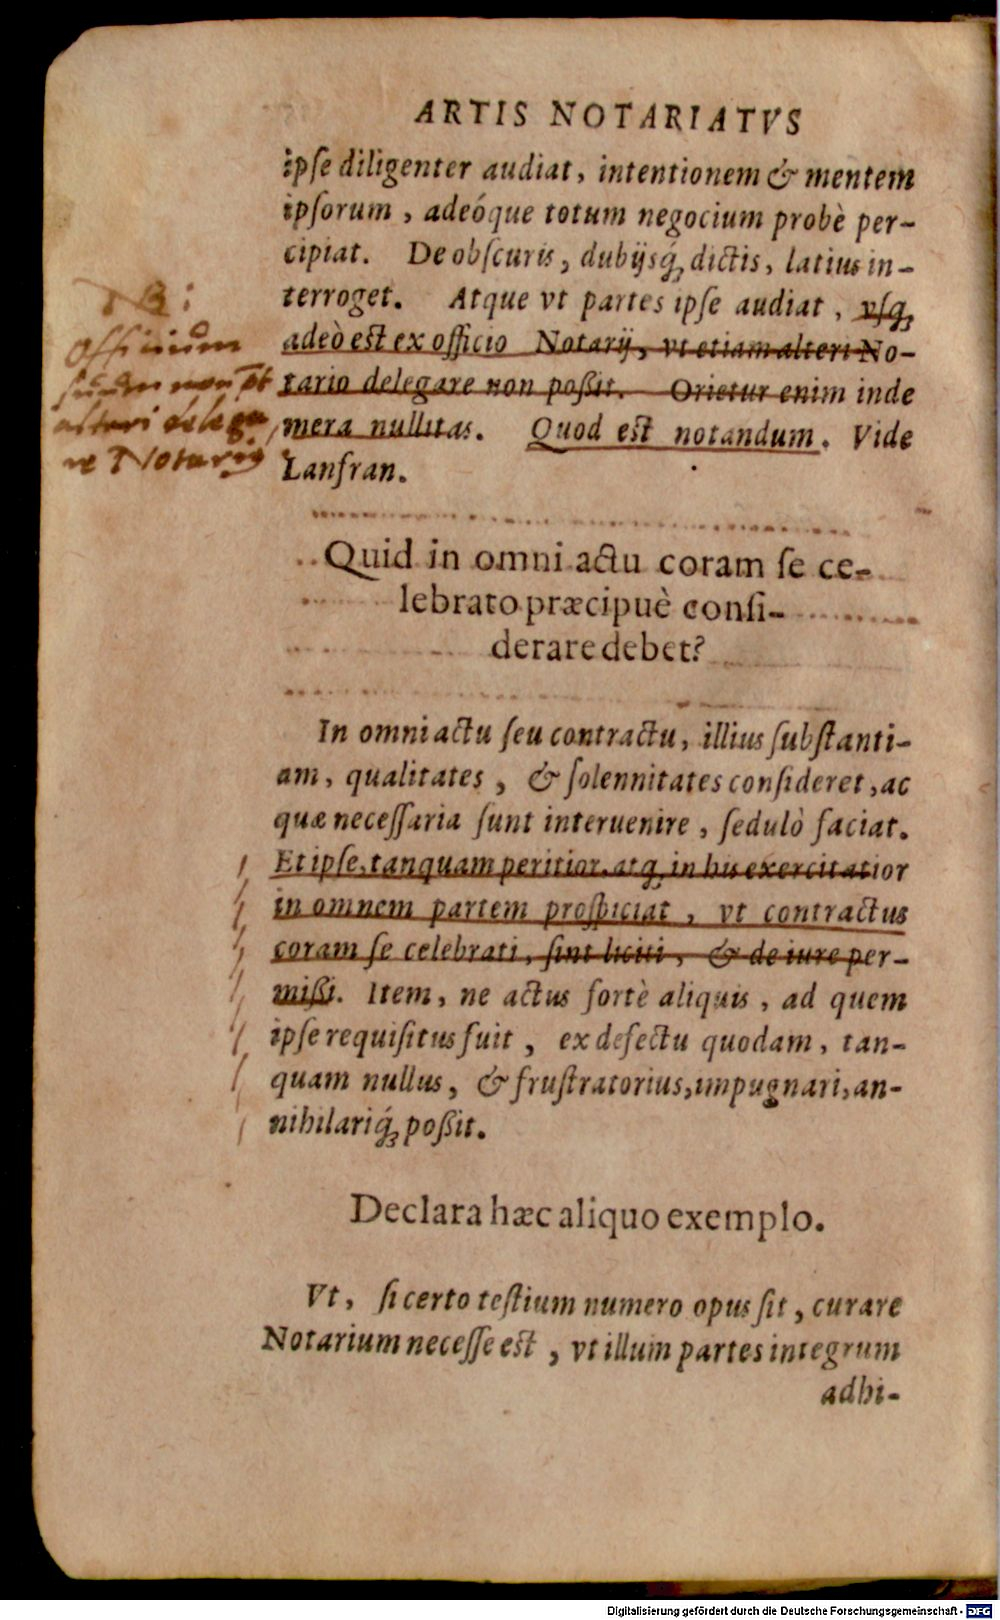 ARTIS NOTARIATVS
ipſe diligenter audiat, intentionem & mentem
ipſorum, adeóque totum negocium probè per-
cipiat. De obſcuris, dubijsq́; dictis, latius in-
terroget. Atque vt partes ipſe audiat, vſq;
adeò est ex officio Notarij, vt etiam alteri No-
tario delegare non poßit. Orietur enim inde
mera nullitas. Quod est notandum. Vide
Lanfran.
NB:
Officium
suum non pt
alteri delega
re Notarius
Quid in omni actu coram ſe ce-
lebrato præcipuè conſi-
derare debet?
In omni actu ſeu contractu, illius ſubſtanti-
am, qualitates, & ſolennitates conſideret, ac
quæ neceſſaria ſunt interuenire, ſedulò faciat.
Et ipſe, tanquam peritior, atq; in his exercitatior
in omnem partem proſpiciat, vt contractus
coram ſe celebrati, ſint liciti, & de iure per-
mißi. Item, ne actus fortè aliquis, ad quem
ipſe requiſitus fuit, ex defectu quodam, tan-
quam nullus, & fruſtratorius, impugnari, an-
nihilariq́; poßit.
Declara hæc aliquo exemplo.
Vt, ſi certo teſtium numero opus ſit, curare
Notarium neceſſe est, vt illum partes integrum
adhi-
Digitalisierung gefördert durch die Deutsche Forschungsgemeinschaft - DFG